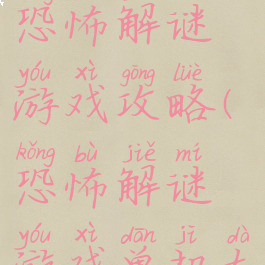 恐怖解谜
yóu xì gōng lüè
游戏攻略(
kǒng bù jiě mí
恐怖解谜
yóu xì dān jī dà
游戏单机大